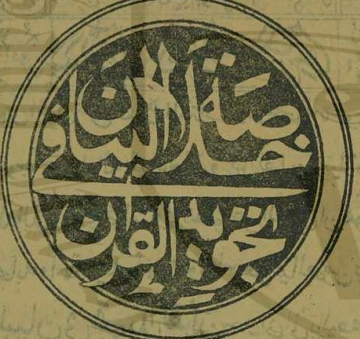 خلاصة البيان في
تجويد القرآن